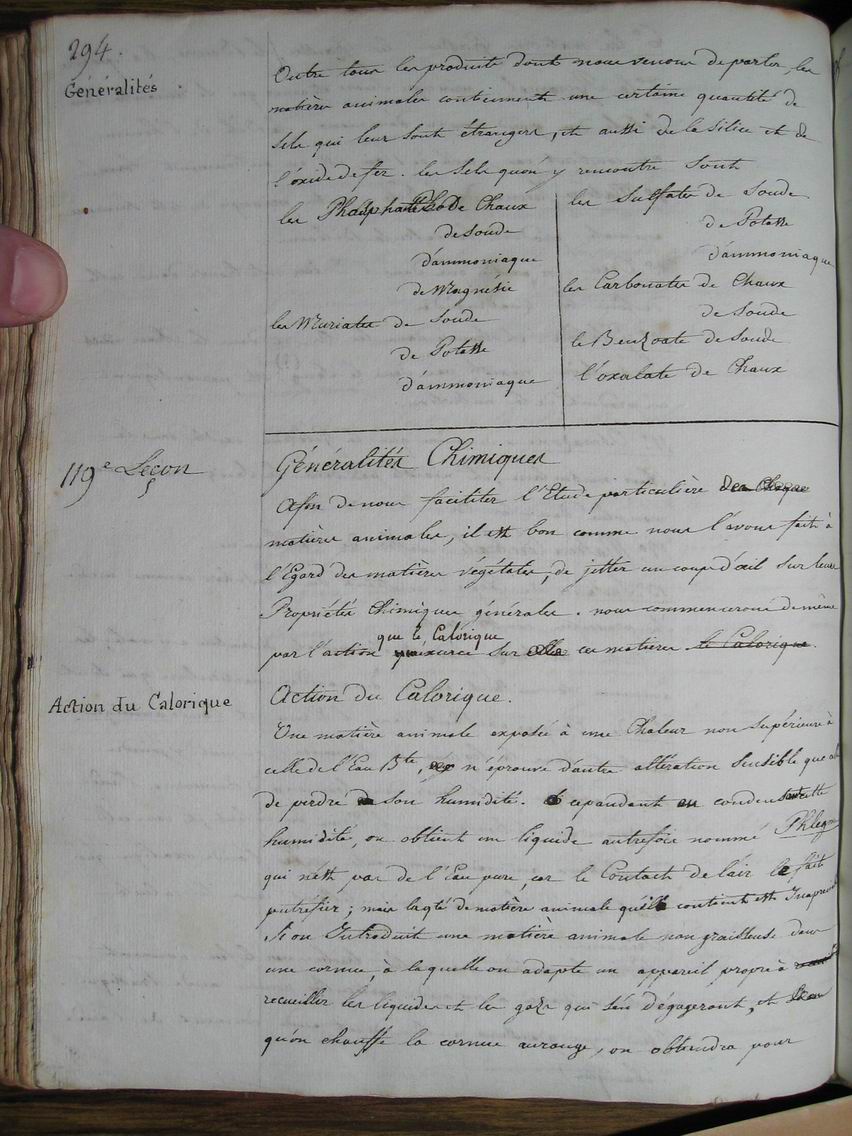 294.
Généralités
Outre tous les produits dont nous venons de parler, les
matières animales contiennent une certaine quantité de
sels qui leur sont étrangers, et aussi de la silice et de
l'oxide de fer. les sels qu'on y rencontre sont
les Phosphates de Chaux
de Soude
d'ammoniaque
de Magnésie
les Muriates de Soude
de Potasse
d'ammoniaque
les Sulfates de Soude
de Potasse
d'ammoniaque
les Carbonates de Chaux
de Soude
le Benzoate de Soude
l'oxalate de Chaux
119e Leçon
Généralités Chimiques
Afin de nous faciliter l'Etude particulière des Chaque
matières animales, il est bon comme nous l'avons fait à
l'Egard des matières végétales, de jetter un coup d'œil sur leurs
Propriétés Chimiques générales. nous commencerons de même
que le Calorique
par l'action exerce sur ces matières le Calorique.
Action du Calorique
Action du Calorique.
Une matière animale exposée à une Chaleur non supérieure à
celle de l'Eau Bte, n'éprouve d'autre altération sensible que
de perdre son humidité. cependant en condensant cette
humidité, on obtient un liquide autrefois nommé Phlegme
qui n'est pas de l'Eau pure, car le Contact de l'air le fait
putréfier; mais la qté de matière animale qu'il contient est
Si on Introduit une matière animale non graisseuse dans
une cornue, à laquelle on adapte un appareil propre à
recueillir les liquides et les gazs qui s'en dégageront, et
qu'on chauffe la cornue au rouge, on obtiendra pour